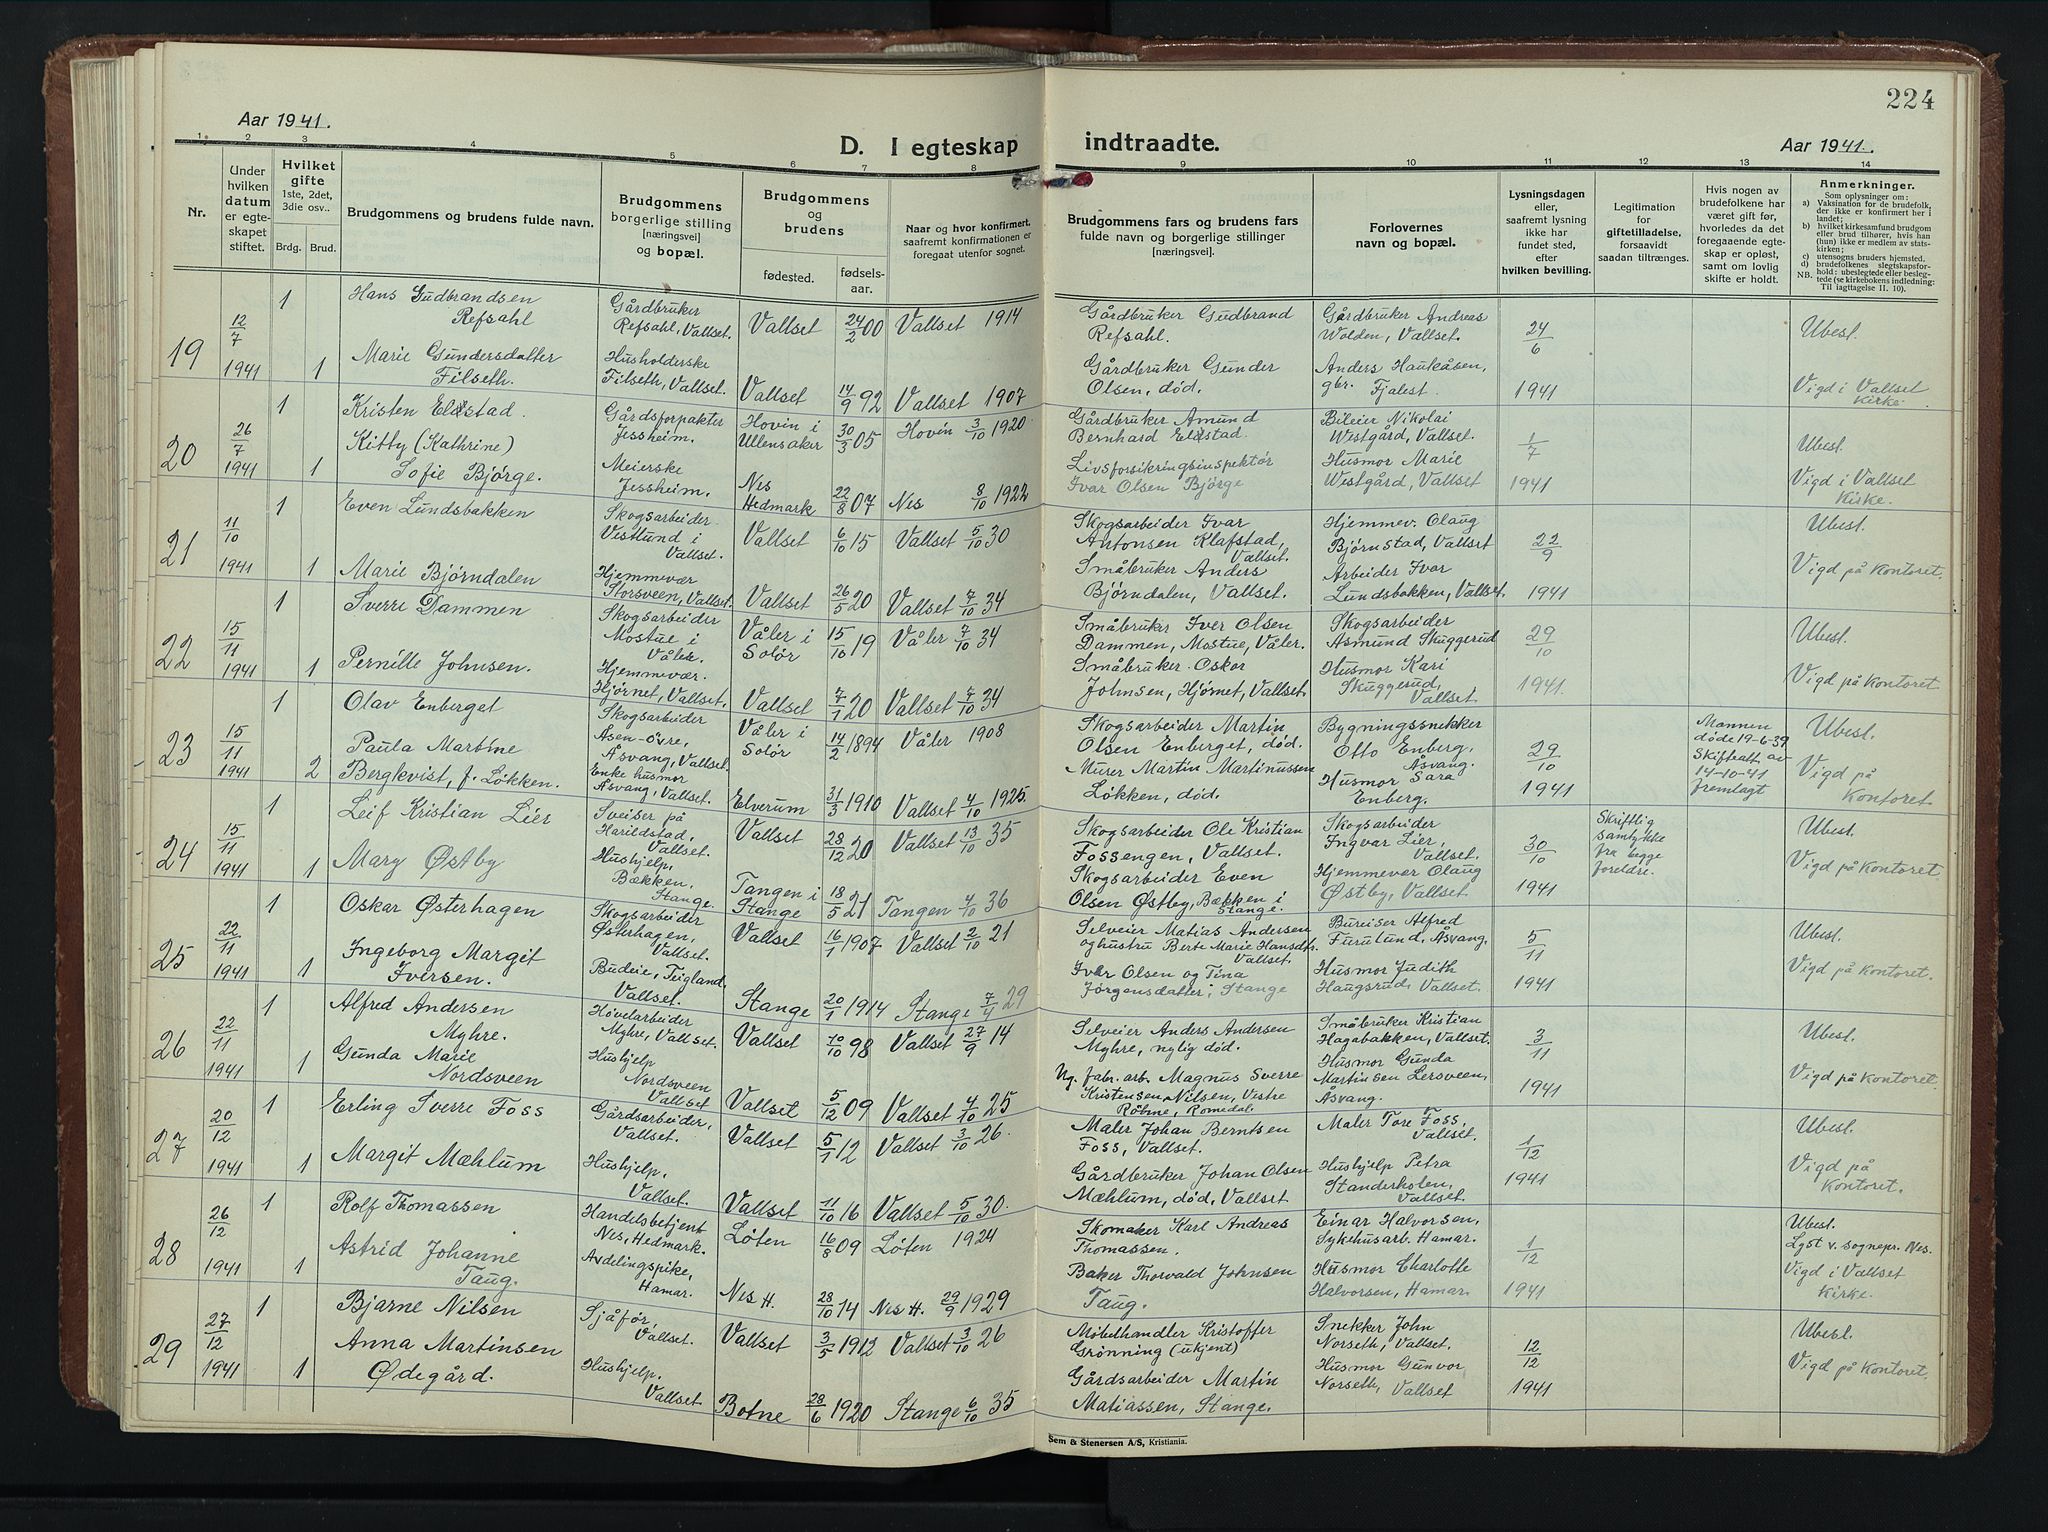 224
Aar 1941.
D. I egteskap indtraadte.
Aar 1941.
1 2 3 4 5 6 7 8 9 10 11 12 13 14
Nr.
Under hvilken datum er egteskapet stiftet.
Hvilket gifte 1ste, 2det, 3die osv..
Brdg. Brud.
Brudgommens og brudens fulde navn.
Brudgommens borgerlige stilling [næringsvei] og bopæl.
Brudgommens og brudens
fødested. fødsels-aar.
Naar og hvor konfirmert, saafremt konfirmationen er foregaat utenfor sognet.
Brudgommens fars og brudens fars fulde navn og borgerlige stillinger [næringsvei].
Forlovernes navn og bopæl.
Lysningsdagen eller, saafremt lysning ikke har fundet sted, efter hvilken bevilling.
Legitimation for giftetilladelse, forsaavidt saadan tiltrænges.
Hvis nogen av brudefolkene har været gift før, hvorledes da det foregaaende egteskap er opløst, samt om lovlig skifte er holdt.
Anmerkninger.
Som oplysninger om:
a) Vaksination for de brudefolk, der ikke er konfirmert her i landet;
b) hvilket kirkesamfund brudgom eller brud tilhører, hvis han (hun) ikke er medlem av statskirken;
c) utensogns bruders hjemsted.
d) brudefolkenes slegtskapsforhold: ubeslegtede eller beslegtede (se kirkebokens indledning: Til iagttagelse II. 10).
NB.
19 12/7 1941
1 Hans Gudbrandsen Refsahl Gårdbruker Refsahl, Vallset. Vallset 24/2 00 Vallset 1914 Gårdbruker Gudbrand Refsahl. Gårdbruker Andreas Wolden, Vallset. 24/6 1941 Ubesl.
1 Marie Gundersdatter Filseth. Husholderske Filseth, Vallset. Vallset 14/9 92 Vallset 1907 Gårdbruker Gunder Olsen, død. Anders Haukåsen, gbr. Fjalest Vigd i Vallset kirke.
20 26/7 1941
1 Kristen Eldstad. Gårdsforpakter Jessheim. Hovin i Ullensaker 30/3 05 Hovin 3/10 1920 Gårdbruker Amund Bernhard Eldstad. Bileier Nikolai Westgård, Vallset. 1/7 1941 Ubesl.
1 Kitty (Kathrine) Sofie Bjørge. Meierske Jessheim. Nes Hedmark 22/8 07 Nes 8/10 1922 Livsforsikringsinspektør Ivar Olsen Bjørge Husmor Marie Westgård, Vallset Vigd i Vallset kirke.
21 11/10 1941
1 Even Lundsbakken Skogsarbeider Vestlund i Vallset. Vallset 6/10 15 Vallset 5/10 30 Skogsarbeider Ivar Antonsen Klafstad, Vallset. Hjemmev. Olaug Bjørnstad, Vallset 22/9 1941 Ubesl.
1 Marie Bjørndalen Hjemmevær Storsveen, Vallset. Vallset 26/5 20 Vallset 7/10 34 Småbruker Anders Bjørndalen, Vallset. Arbeider Ivar Lundsbakken, Vallset. Vigd på kontoret.
22 15/11 1941
1 Sverre Dammen Skogsarbeider Mostue i Våler. Våler i Solør 15/10 19 Våler 7/10 34 Småbruker Iver Olsen Dammen, Mostue, Våler. Skogsarbeider Asmund Skuggerud 29/10 1941. Ubesl.
1 Pernille Johnsen. Hjemmevær. Hjørnet, Vallset. Vallset 7/1 20 Vallset 7/10 34 Småbruker Oskar Johnsen, Hjørnet, Vallset. Husmor Kari Skuggerud, Vallset Vigd på kontoret
23 15/11 1941
1 Olav Enberget Skogsarbeider Åsen-övre, Åsvang, Vallset. Våler i Solør 14/2 1894 Våler 1908 Skogsarbeider Martin Olsen Enberget, død. Bygningssnekker Otto Enberg, Åsvang. 29/10 1941 Mannen døde 19-6-39 Skifteatt. av 14-10-41 fremlagt Ubesl.
2 Paula Martine Bergkvist, f. Løkken. Enke husmor Åsvang, Vallset. Elverum 31/3 1910 Vallset 4/10 1925. Murer Martin Martinussen Løkken, død. Husmor Sara Enberg. Vigd på kontoret.
24 15/11 1941
1 Leif Kristian Lier Sveiser på Harildstad, Vallset. Vallset 28/12 20 Vallset 13/10 35 Skogsarbeider Ole Kristian Fossengen, Vallset. Skogsarbeider Ingvar Lier, Vallset. 30/10 1941 Skriftlig samtykke fra begge foreldre. Ubesl.
1 Mary Østby Hushjelp, Bækken, Stange. Tangen i Stange 18/5 21 Tangen 4/10 36 Skogsarbeider Even Olsen Østby, Bækken i Stange. Hjemmevær Olaug Østby, Vallset. Vigd på kontoret.
25 22/11 1941
1 Oskar Østerhagen Skogsarbeider Østerhagen, Vallset. Vallset 16/1 1907 Vallset 2/10 21 Selveier Matias Andersen og hustru Berte Marie Hansdtr. Vallset. Bureiser Alfred Furulund, Åsvang. 5/11 1941 Ubesl.
1 Ingeborg Margit Iversen. Budeie, Teigland, Vallset. Stange 20/1 1914 Stange 7/4 29 Ivar Olsen og Tina Jørgensdatter, Stange Husmor Judith Haugsrud, Vallset. Vigd på kontoret.
26 22/11 1941
1 Alfred Andersen Myhre. Høvelarbeider Myhre, Vallset. Vallset 10/10 98 Vallset 27/9 14 Selveier Anders Andersen Myhre, nylig død. Småbruker Kristian Hagabakken, Vallset. 3/11 1941 Ubesl.
1 Gunda Marie Nordsveen Hushjelp Nordsveen Vallset Vallset 5/12 09 Vallset 4/10 25 Ug. fabr. arb. Magnus Sverre Kristensen Nilsen, Vestre Røbne, Romedal. Husmor Gunda Martinsen Lersveen, Åsvang. Vigd på kontoret.
27 20/12 1941
1 Erling Sverre Foss Gårdsarbeider, Vallset. Vallset 5/1 12 Vallset 3/10 26. Maler Johan Berntsen Foss, Vallset. Maler Tore Foss, Vallset. 1/12 1941 Ubesl.
1 Margit Mæhlum Hushjelp, Vallset. Vallset 11/10 16 Vallset 5/10 30. Gårdbruker Johan Olsen Mæhlum, død, Vallset Hushjelp Petra Standerholen, Vallset. Vigd på kontoret.
28 26/12 1941
1 Rolf Thomassen Handelsbetjent Nes, Hedmark. Løten 16/8 09 Løten 1924 Skomaker Karl Andreas Thomassen. Einar Halvorsen, Sykehusarb. Hamar. 1/12 1941 Ubesl. Lyst v. sognepr. Nes.
1 Astrid Johanne Taug. Avdelingspike, Hamar. Nes H. 28/10 14 Nes H. 29/9 1929 Baker Thorvald Johnsen Taug. Husmor Charlotte Halvorsen, Hamar. Vigd i Vallset kirke.
29 27/12 1941
1 Bjarne Nilsen Sjåfør, Vallset. Vallset 3/5 1912 Vallset 3/10 26 Møbelhandler Kristoffer Grønning (ukjent) Snekker John Norseth, Vallset. 12/12 1941 Ubesl.
1 Anna Martinsen Ødegård. Hushjelp, Vallset Botne 28/6 1920 Stange 6/10 35 Gårdsarbeider Martin Matiassen, Stange. Husmor Gunvor Norseth, Vallset Vigd på kontoret.
Sem & Stenersen A/S, Kristiania.